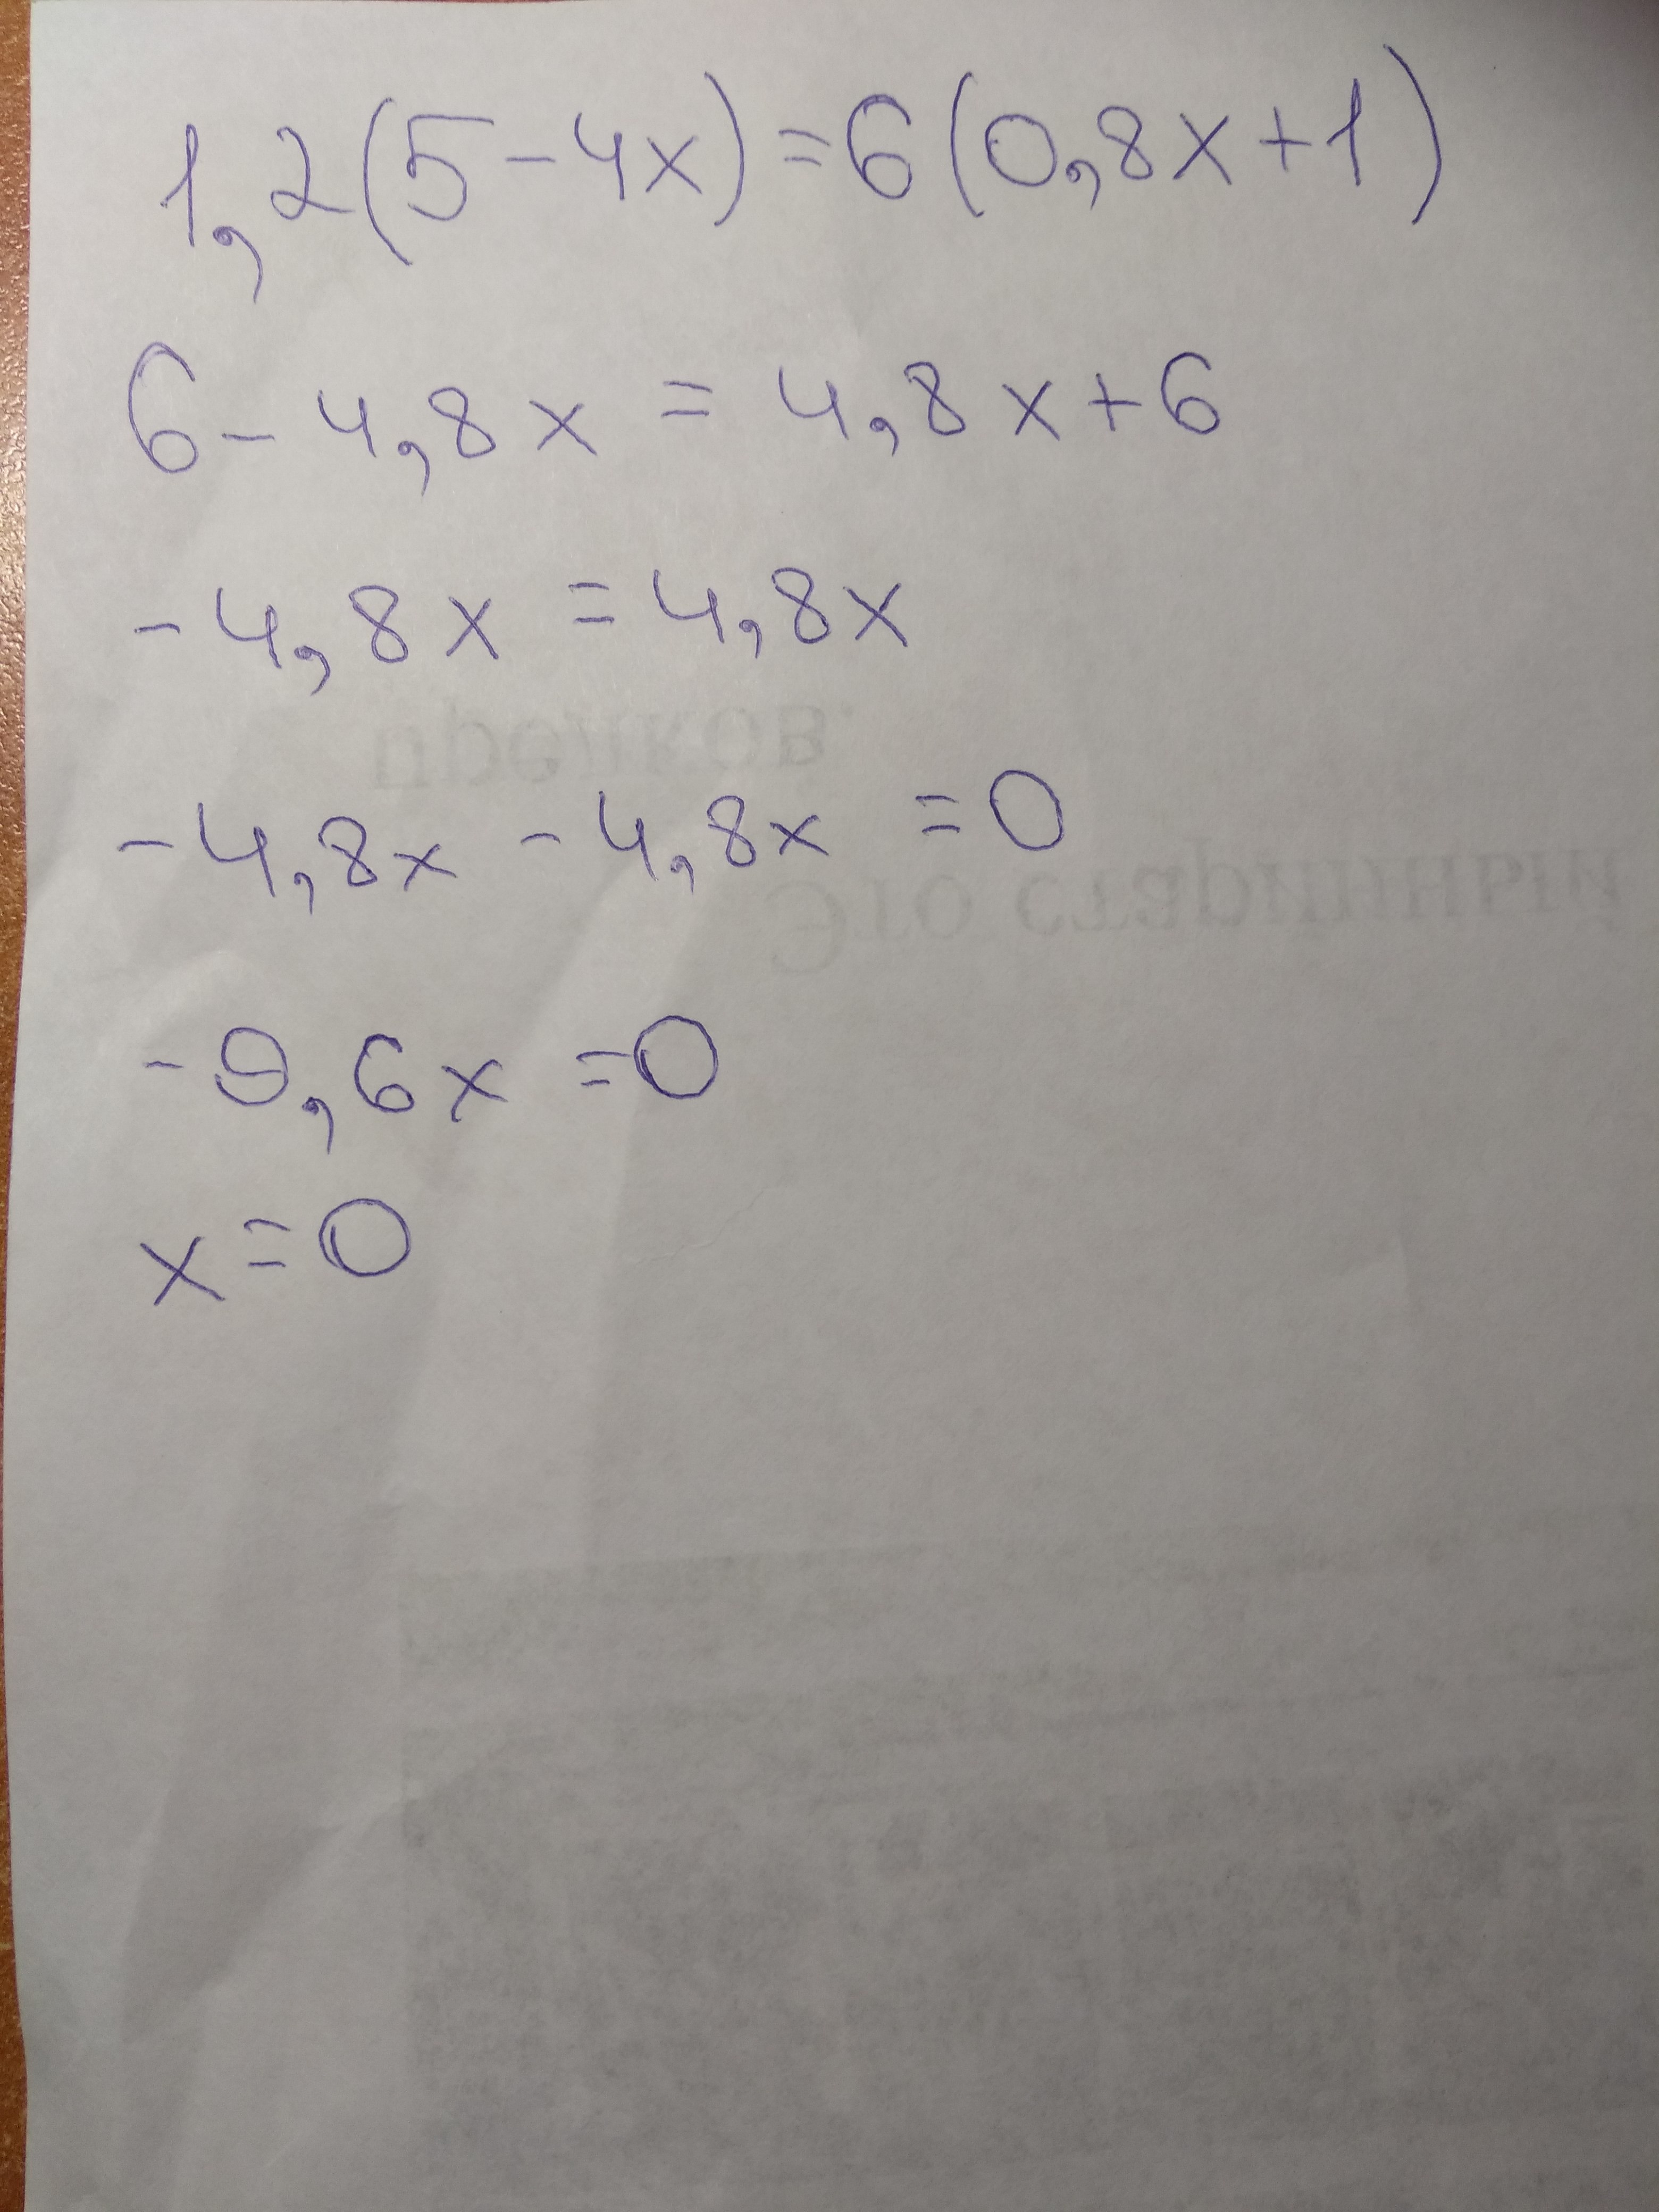 1,2(5-4x)=6(0,8x+1)
6-4,8x=4,8x+6
-4,8x=4,8x
предков.
-4,8x-4,8x=0
Это старинный
-9,6x=0
x=0